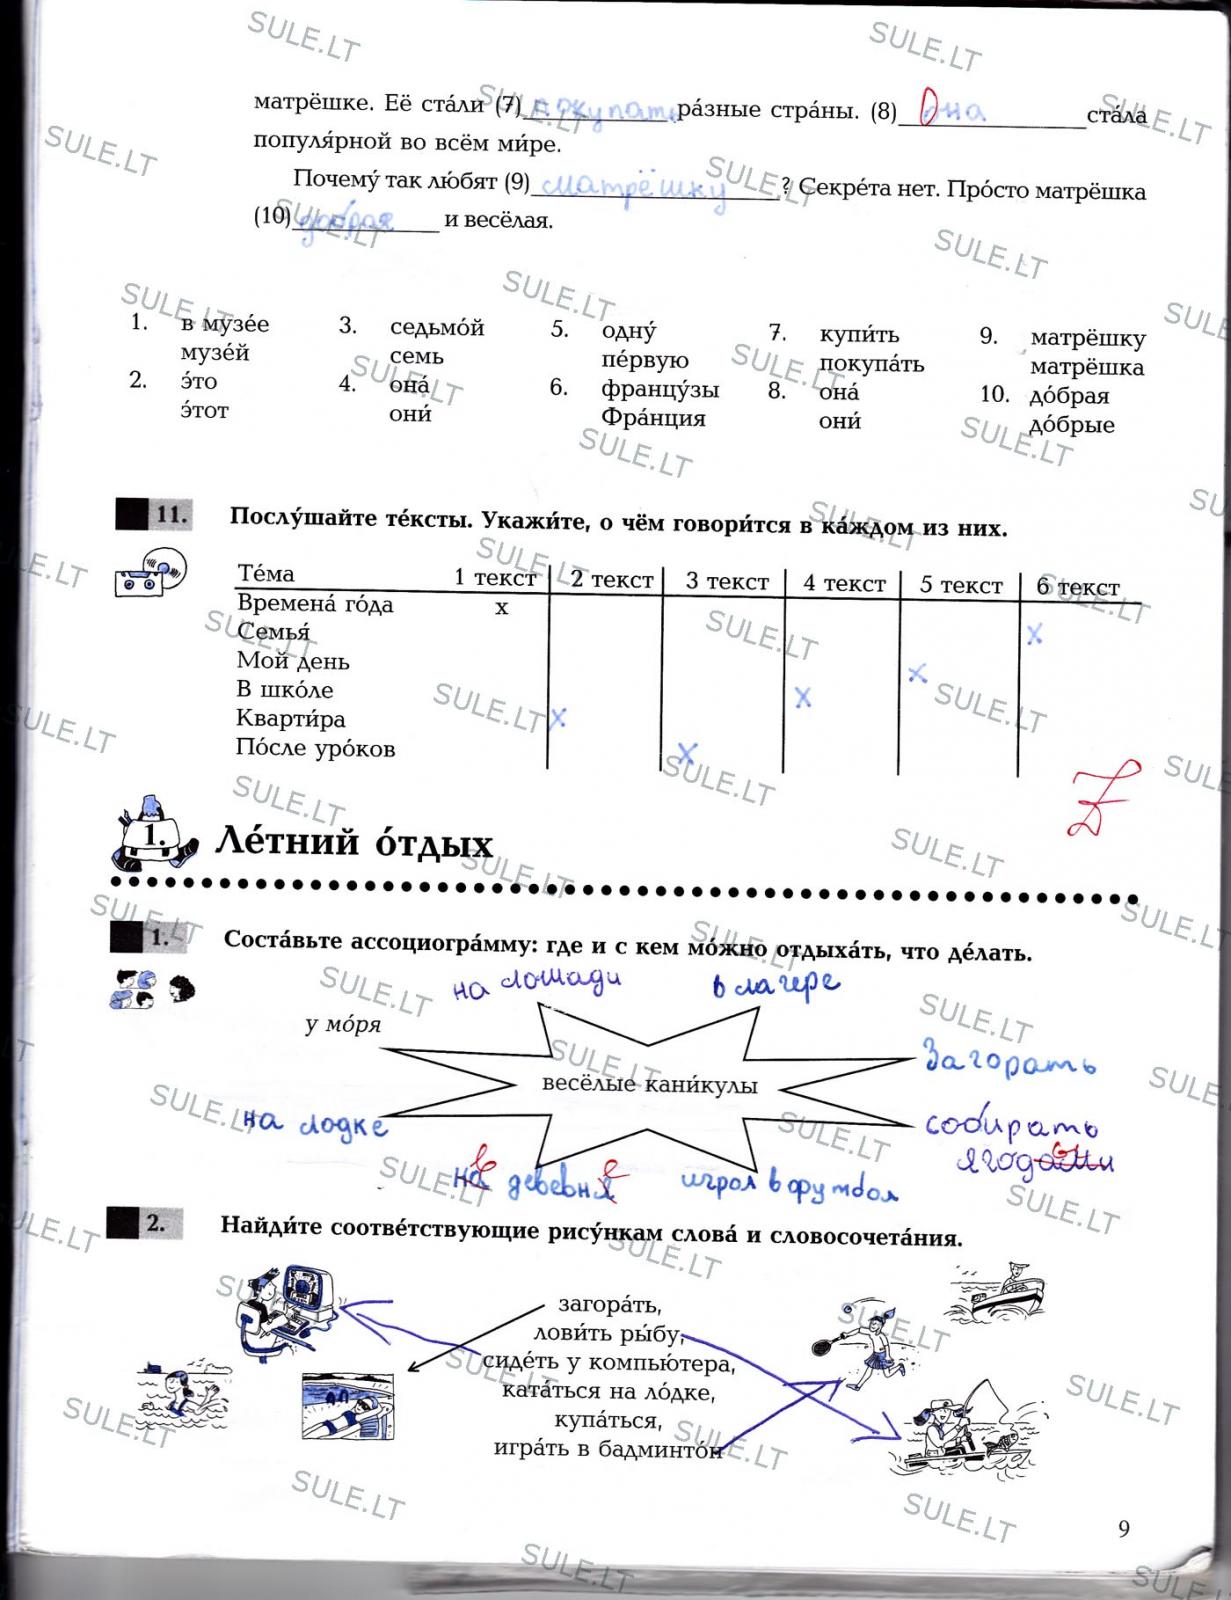 матрёшке. Её ста́ли (7) покупать ра́зные стра́ны. (8) Она ста́ла
популя́рной во всём ми́ре.
Почему́ так лю́бят (9) матрёшку ? Секре́та нет. Про́сто матрёшка
(10) добрая и весёлая.
1. в музе́е 3. седьмо́й 5. одну́ 7. купи́ть 9. матрёшку
музе́й семь пе́рвую покупа́ть матрёшка
2. э́то 4. она́ 6. францу́зы 8. она́ 10. до́брая
э́тот они́ Фра́нция они́ до́брые
11. Послу́шайте те́ксты. Укажи́те, о чём говори́тся в ка́ждом из них.
Те́ма 1 текст 2 текст 3 текст 4 текст 5 текст 6 текст
Времена́ го́да x
Семья́ x
Мой день x
В шко́ле x
Кварти́ра x
По́сле уро́ков x
1. Ле́тний о́тдых
1. Соста́вьте ассоциогра́мму: где и с кем мо́жно отдыха́ть, что де́лать.
на лошади в лагере
у мо́ря
Загорать
весёлые кани́кулы
на лодке собирать
ягоды
в деревне играл в футбол
2. Найди́те соотве́тствующие рису́нкам слова́ и словосочета́ния.
загора́ть,
лови́ть ры́бу,
сиде́ть у компью́тера,
ката́ться на ло́дке,
купа́ться,
игра́ть в бадминто́н
9
SULE.LT